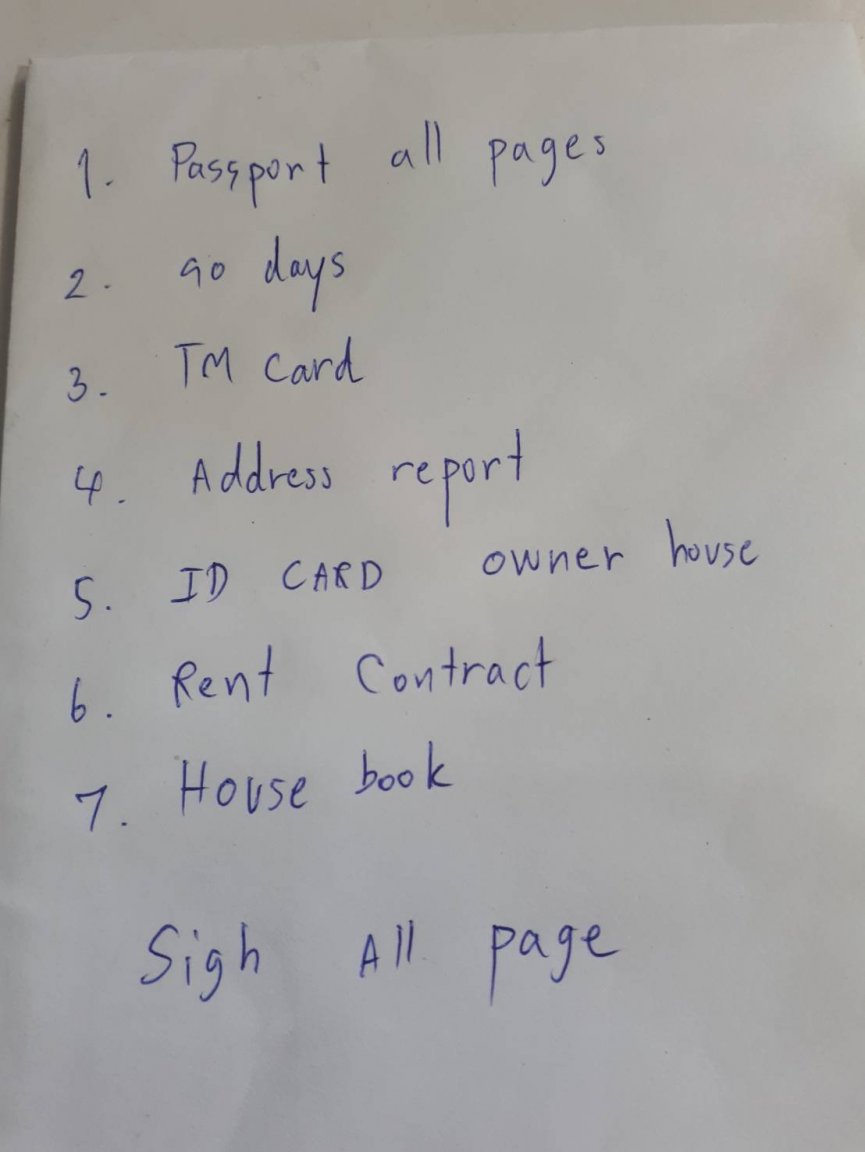 1. Passport all pages
2. 90 days
3. TM Card
4. Address report
5. ID CARD owner house
6. Rent Contract
7. House book
Sigh All page